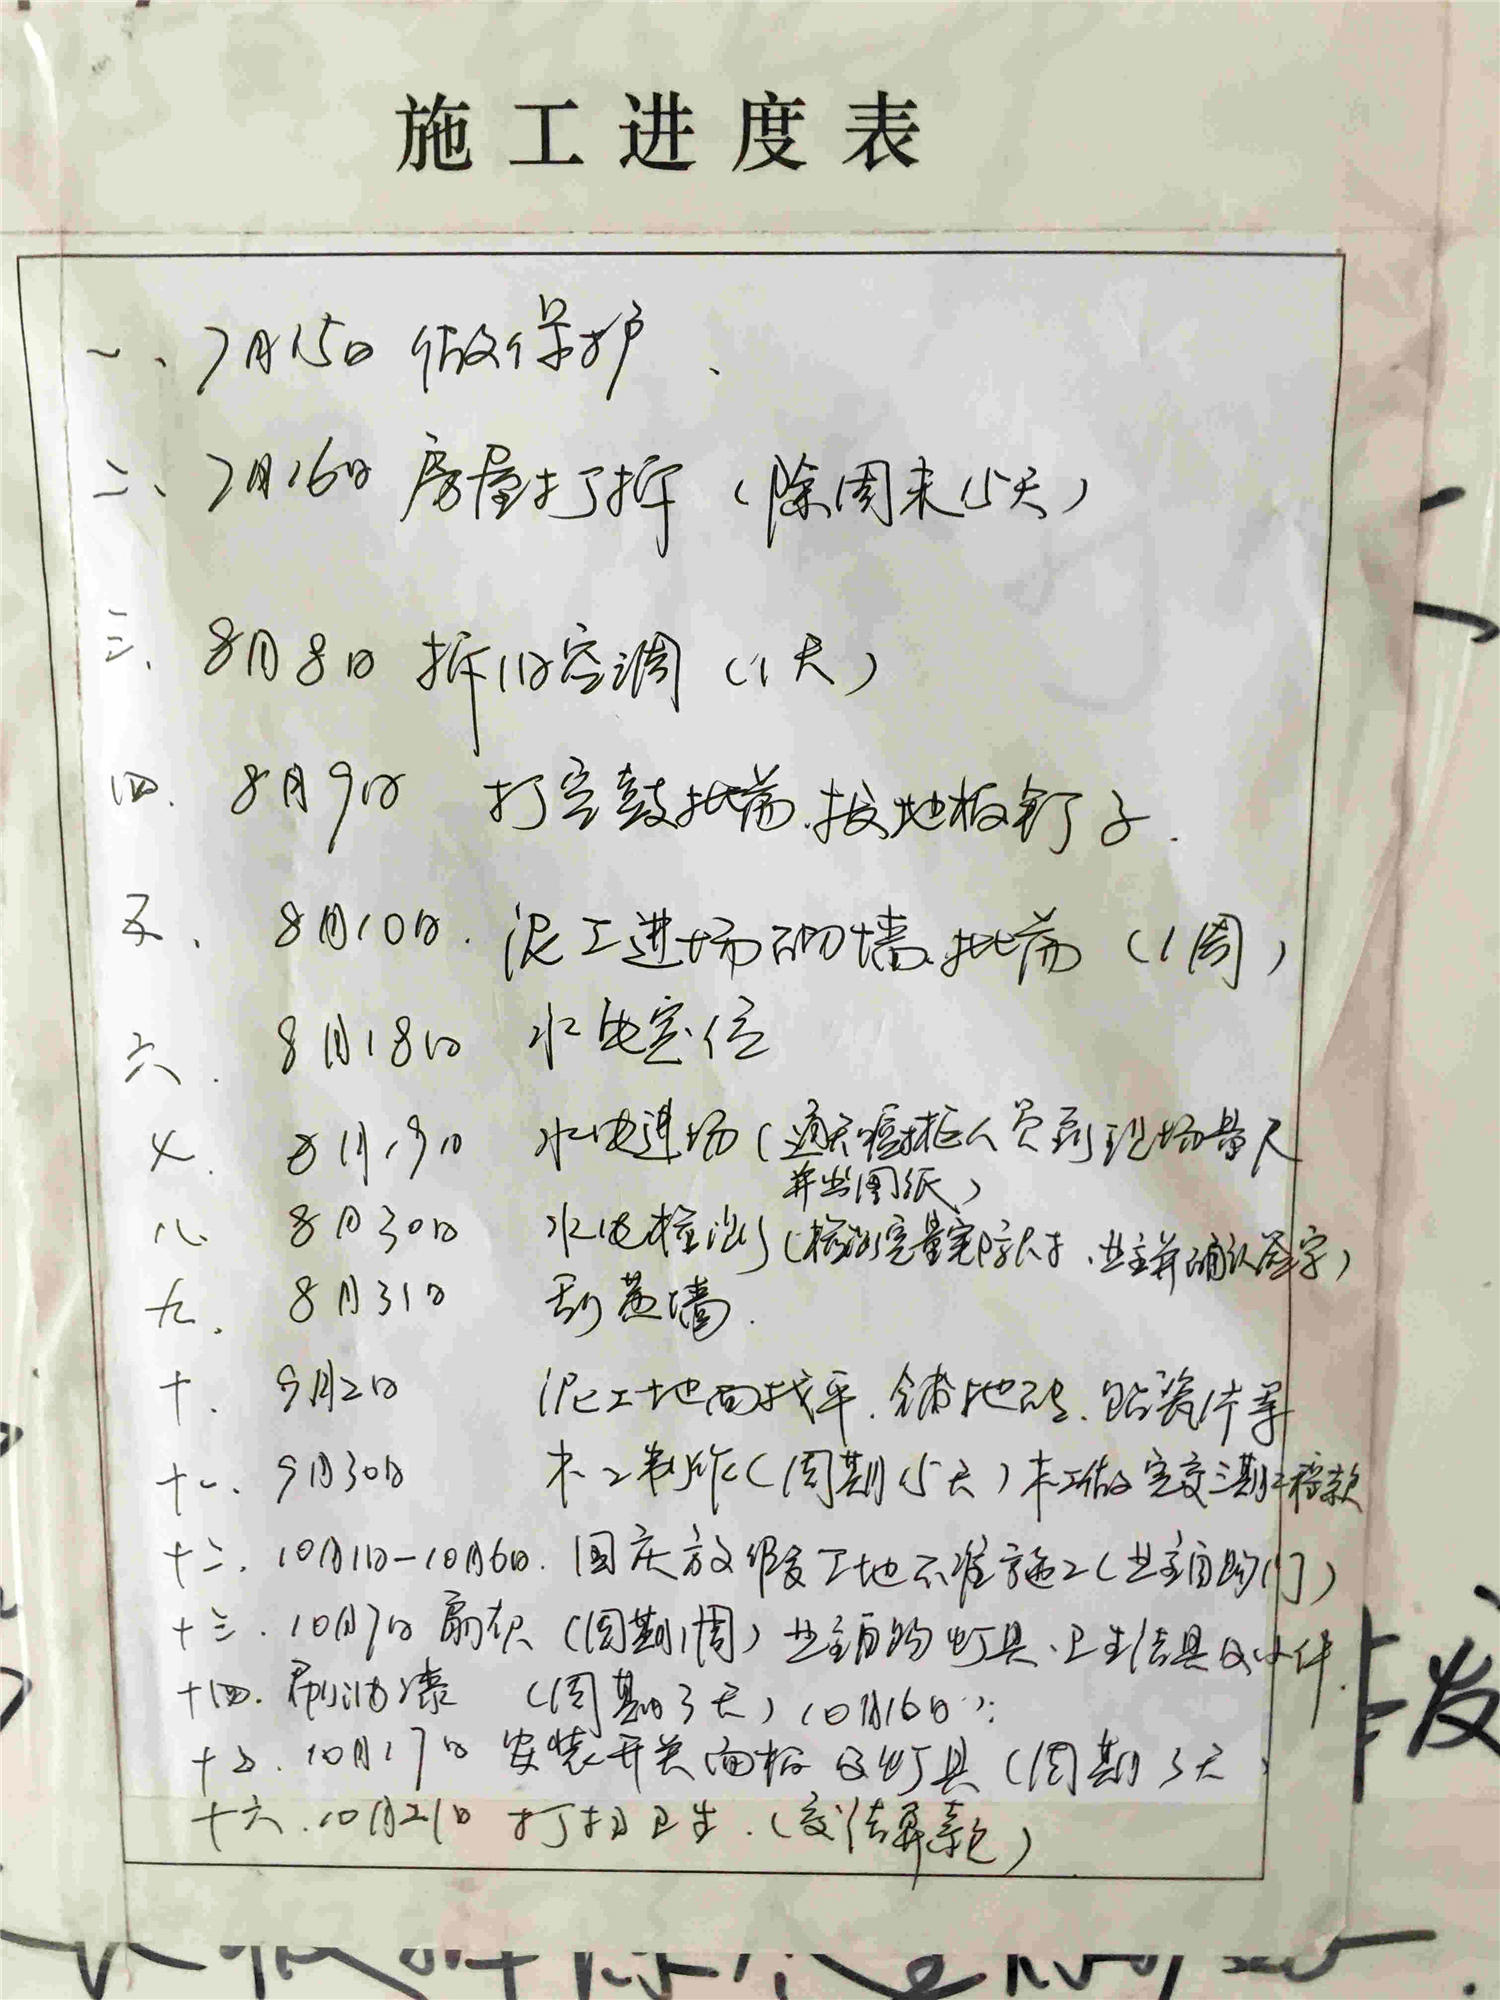 施工进度表
一、7月15日 做保护、
二、7月16日 房屋打拆（除周末15天）
三、8月8日 拆旧空调（1天）
四、8月9日 打空鼓批荡、拔地板钉子.
五、8月10日. 泥工进场砌墙、批荡（1周）
六. 8月18日 水电定位
七. 8月19日 水电进场（通知橱柜人员到现场量尺
并出图纸）
八、8月30日 水电检测（检测完量完、业主并确认签字）
九. 8月31日 刮 墙.
十. 9月2日 泥工地面找平、铺地砖、贴瓷片等
十一、9月30日 木工制作（周期15天）木工做完交三期工程款
十二、10月1日-10月6日. 国庆放假工地不准施工（业主自购门）
十三.10月7日 扇灰（周期1周）业主自购灯具、卫生洁具及小件.
十四.刷油漆（周期3天）10月16日
十五.10月17日 安装开关面板及灯具（周期3天）
十六.10月21日 打扫卫生.（交结算款）
发